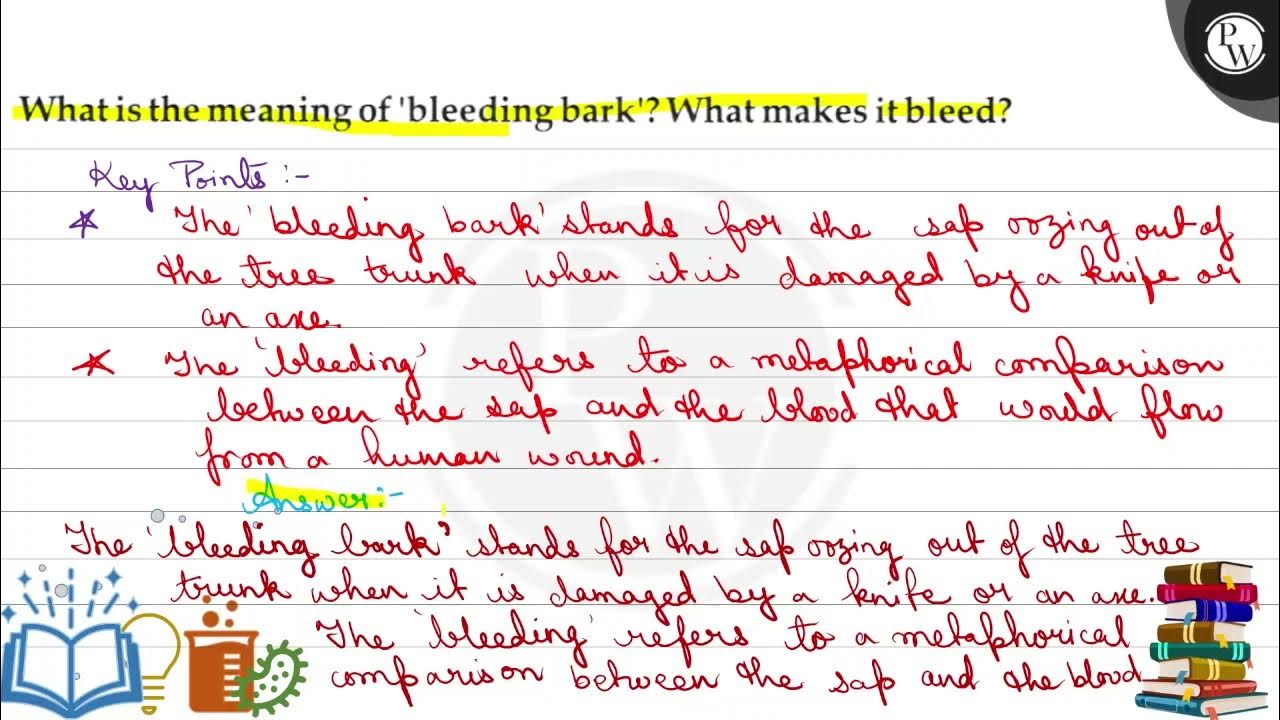 PW
What is the meaning of 'bleeding bark'? What makes it bleed?
Key Points :-
The 'bleeding bark' stands for the sap oozing out of
the tree trunk when it is damaged by a knife or
an axe.
The 'bleeding' refers to a metaphorical comparison
between the sap and the blood that would flow
from a human wound.
Answer:-
The 'bleeding bark' stands for the sap oozing out of the tree
trunk when it is damaged by a knife or an axe.
The 'bleeding' refers to a metaphorical
comparison between the sap and the blood